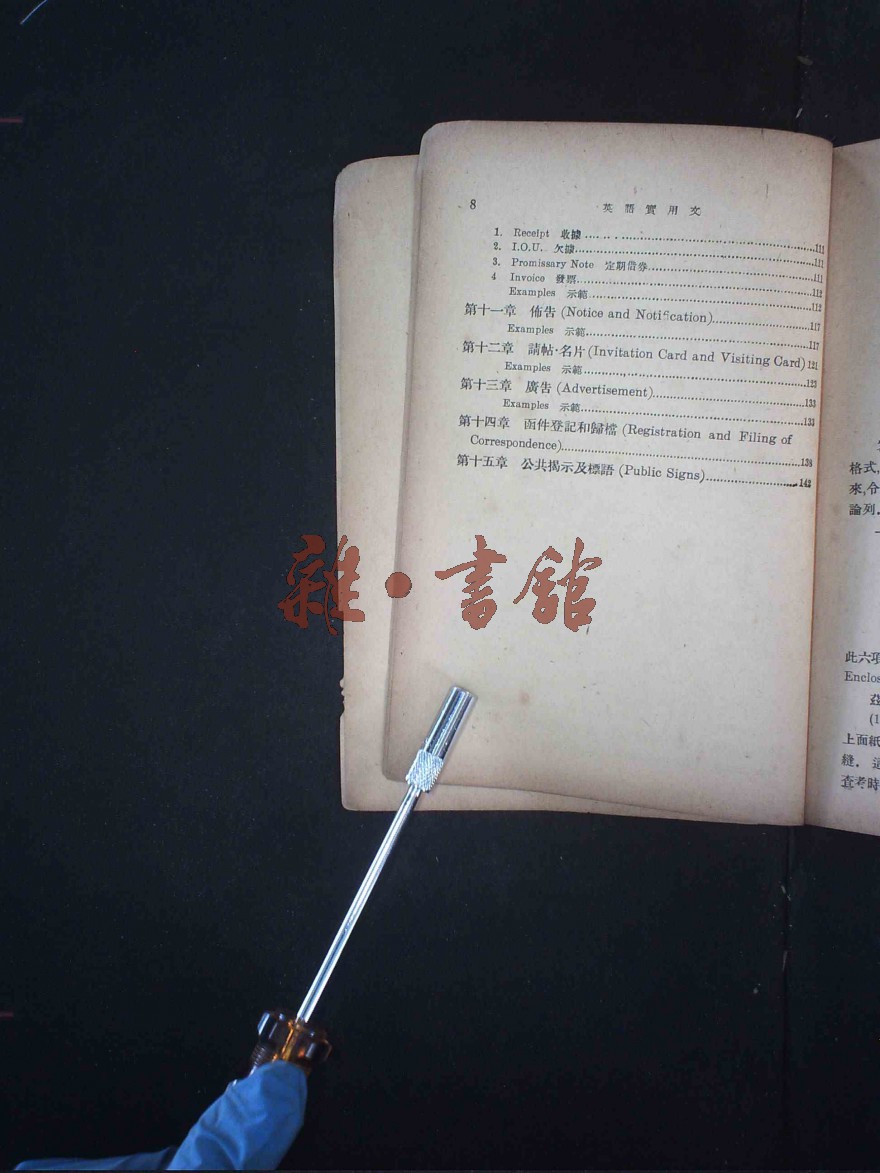 8 英語實用文
1. Receipt 收據 ................111
2. I.O.U. 欠據................111
3. Promissary Note 定期借券................111
4 Invoice 發票................112
Examples 示範................112
第十一章 佈告 (Notice and Notification)................117
Examples 示範................117
第十二章 請帖·名片 (Invitation Card and Visiting Card) 121
Examples 示範................123
第十三章 廣告 (Advertisement)................133
Examples 示範................133
第十四章 函件登記和歸檔 (Registration and Filing of
Correspondence)................138
第十五章 公共揭示及標語 (Public Signs)................142
雜·書館
格式,
來,令
論列.
一
此六項
Enclos
(1
上面紙
縫. 這
查考時